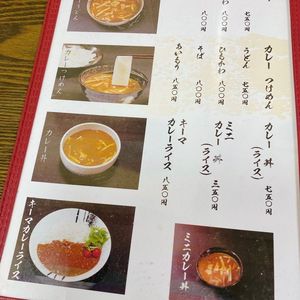 七五〇円
わ
八〇〇円
八〇〇円
カレー つけめん
うどん
七五〇円
ひもかわ
八〇〇円
そば
八〇〇円
あいもり
八五〇円
カレー 丼
(ライス)
七五〇円
ミニ
カレー 丼
(ライス)
三五〇円
キーマ
カレーライス
八五〇円
カレーつけめん
カレー丼
キーマカレーライス
ミニカレー丼